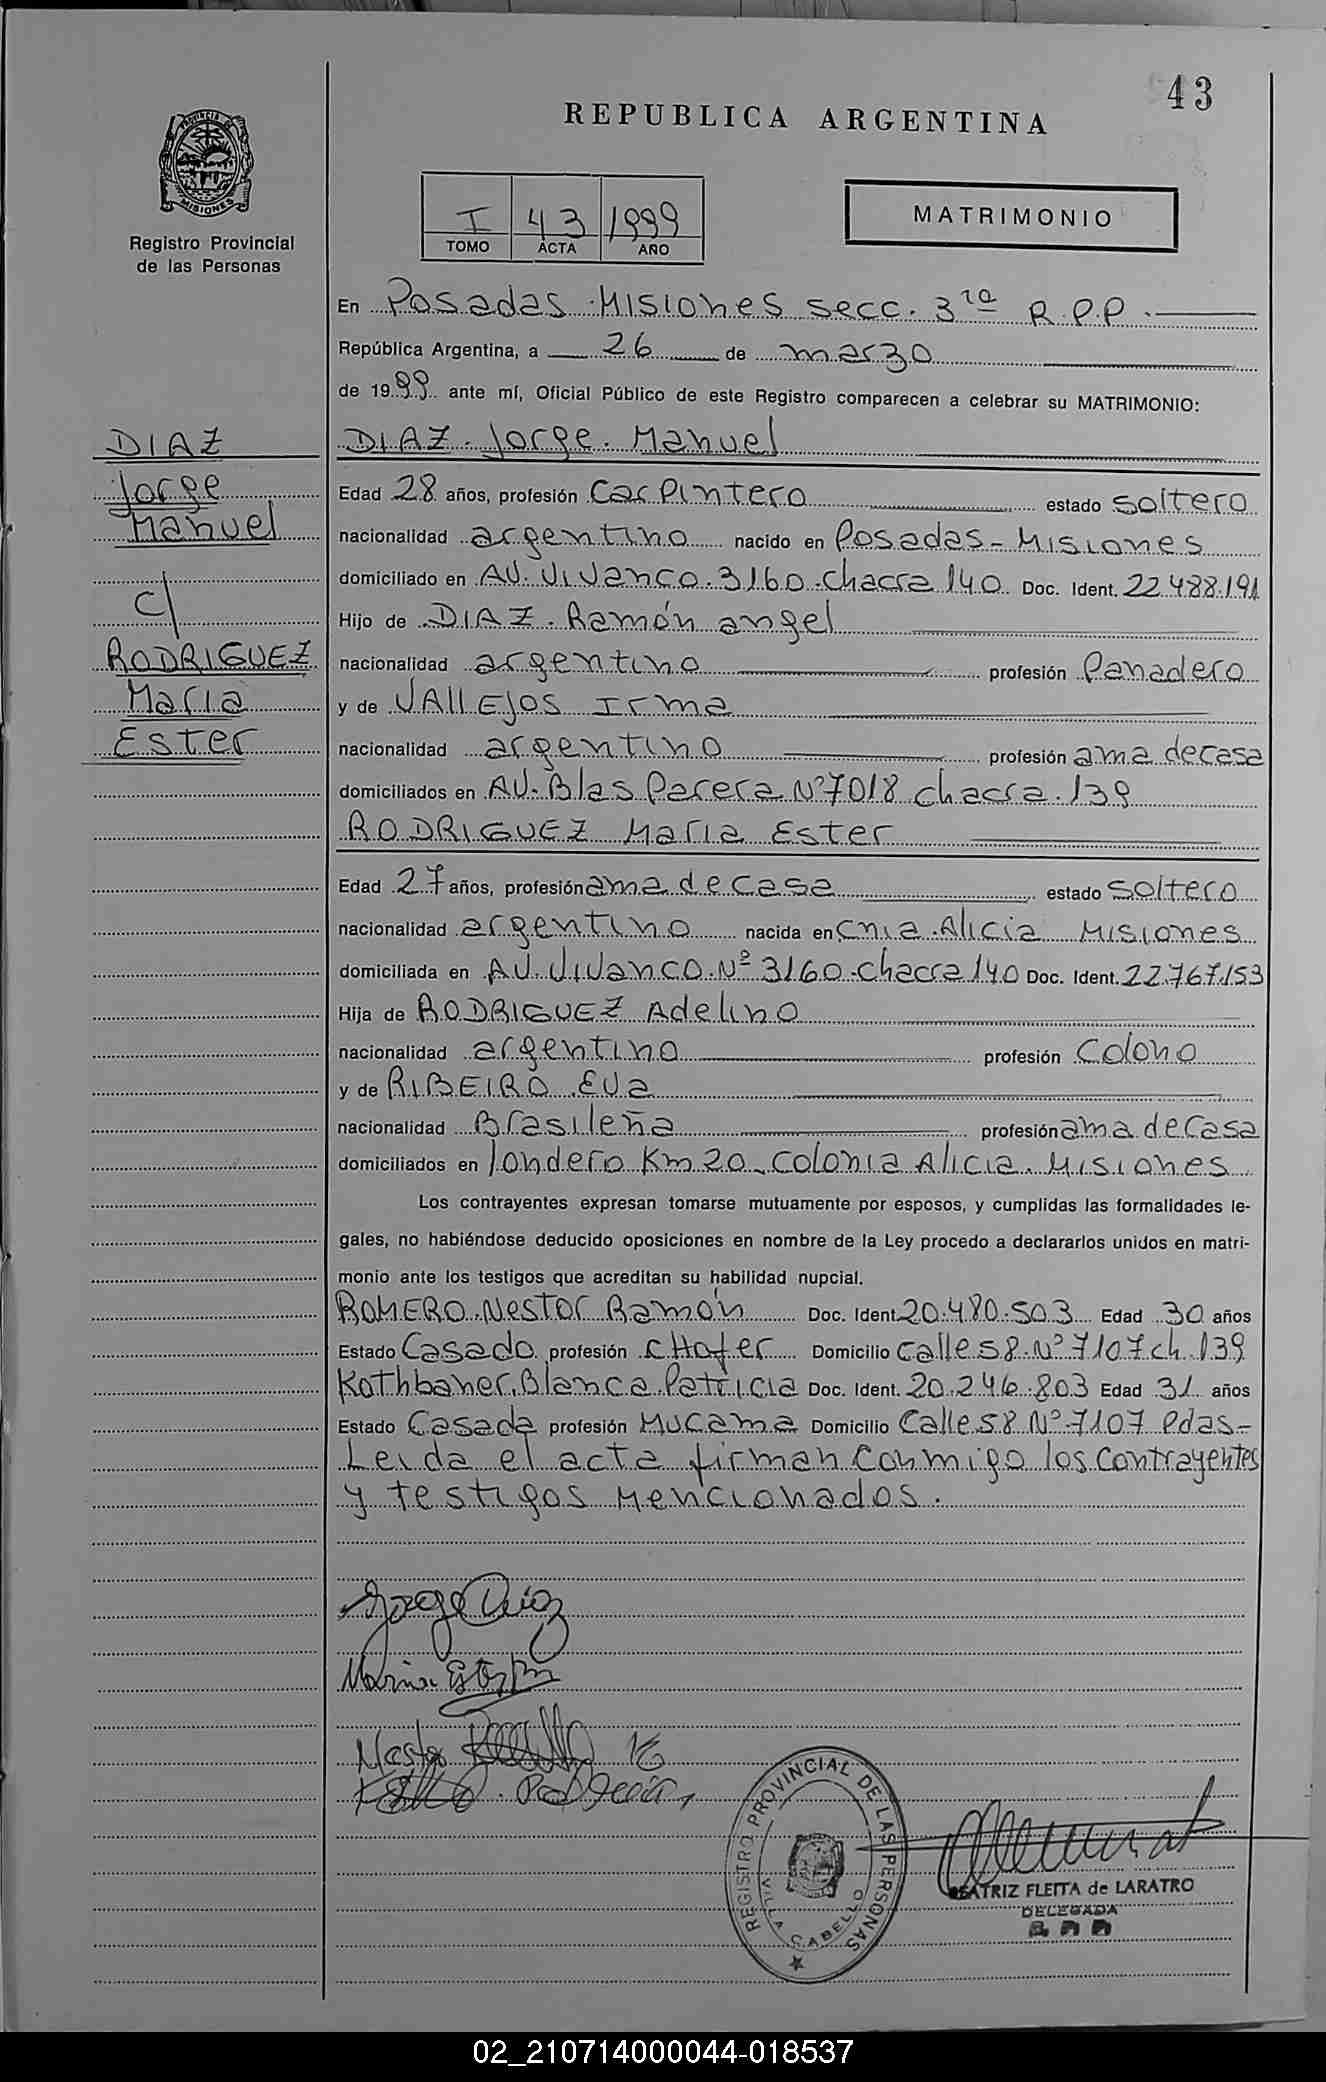 43
REPUBLICA ARGENTINA
PROVINCIA DE
MISIONES
Registro Provincial
de las Personas
I 43 1999
TOMO ACTA AÑO
MATRIMONIO
En Posadas Misiones secc. 3ra R.P.P.
República Argentina, a 26 de marzo
de 1999 ante mí, Oficial Público de este Registro comparecen a celebrar su MATRIMONIO:
DIAZ
Jorge
Manuel
c/
RODRIGUEZ
Maria
Ester
DIAZ. Jorge. Manuel
Edad 28 años, profesión Carpintero estado soltero
nacionalidad argentino nacido en Posadas - Misiones
domiciliado en AV. Vivanco. 3160. chacra 140 Doc. Ident. 22.488.191
Hijo de DIAZ. Ramón angel
nacionalidad argentino profesión Panadero
y de VAllEjos Irma
nacionalidad argentino profesión ama de casa
domiciliados en AV. Blas Parera Nº 7018 chacra. 139
RODRIGUEZ Maria Ester
Edad 27 años, profesión ama de casa estado soltero
nacionalidad argentino nacida en Cnia. Alicia Misiones
domiciliada en AV. Vivanco. Nº 3160. chacra 140 Doc. Ident. 22.767.153
Hija de RODRIGUEZ Adelino
nacionalidad argentino profesión Colono
y de RIBEIRO Eva
nacionalidad Brasileña profesión ama de casa
domiciliados en londero Km 20. Colonia Alicia. Misiones
Los contrayentes expresan tomarse mutuamente por esposos, y cumplidas las formalidades le-
gales, no habiéndose deducido oposiciones en nombre de la Ley procedo a declararlos unidos en matri-
monio ante los testigos que acreditan su habilidad nupcial.
ROMERO. Nestor Ramón Doc. Ident. 20.480.503 Edad 30 años
Estado Casado profesión cHofer Domicilio calle 58. Nº 7107 ch. 139
Kathbaner. Blanca. Patricia Doc. Ident. 20.246.803 Edad 31 años
Estado Casada profesión Mucama Domicilio Calle 58 Nº 7107 Pdas-
Leida el acta firman Conmigo los Contrayentes
y testigos Mencionados.
Jorge Diaz
Maria
Nestor
REGISTRO PROVINCIAL DE LAS PERSONAS
VILLA CABELLO
BEATRIZ FLEITA de LARATRO
DELEGADA
02_210714000044-018537